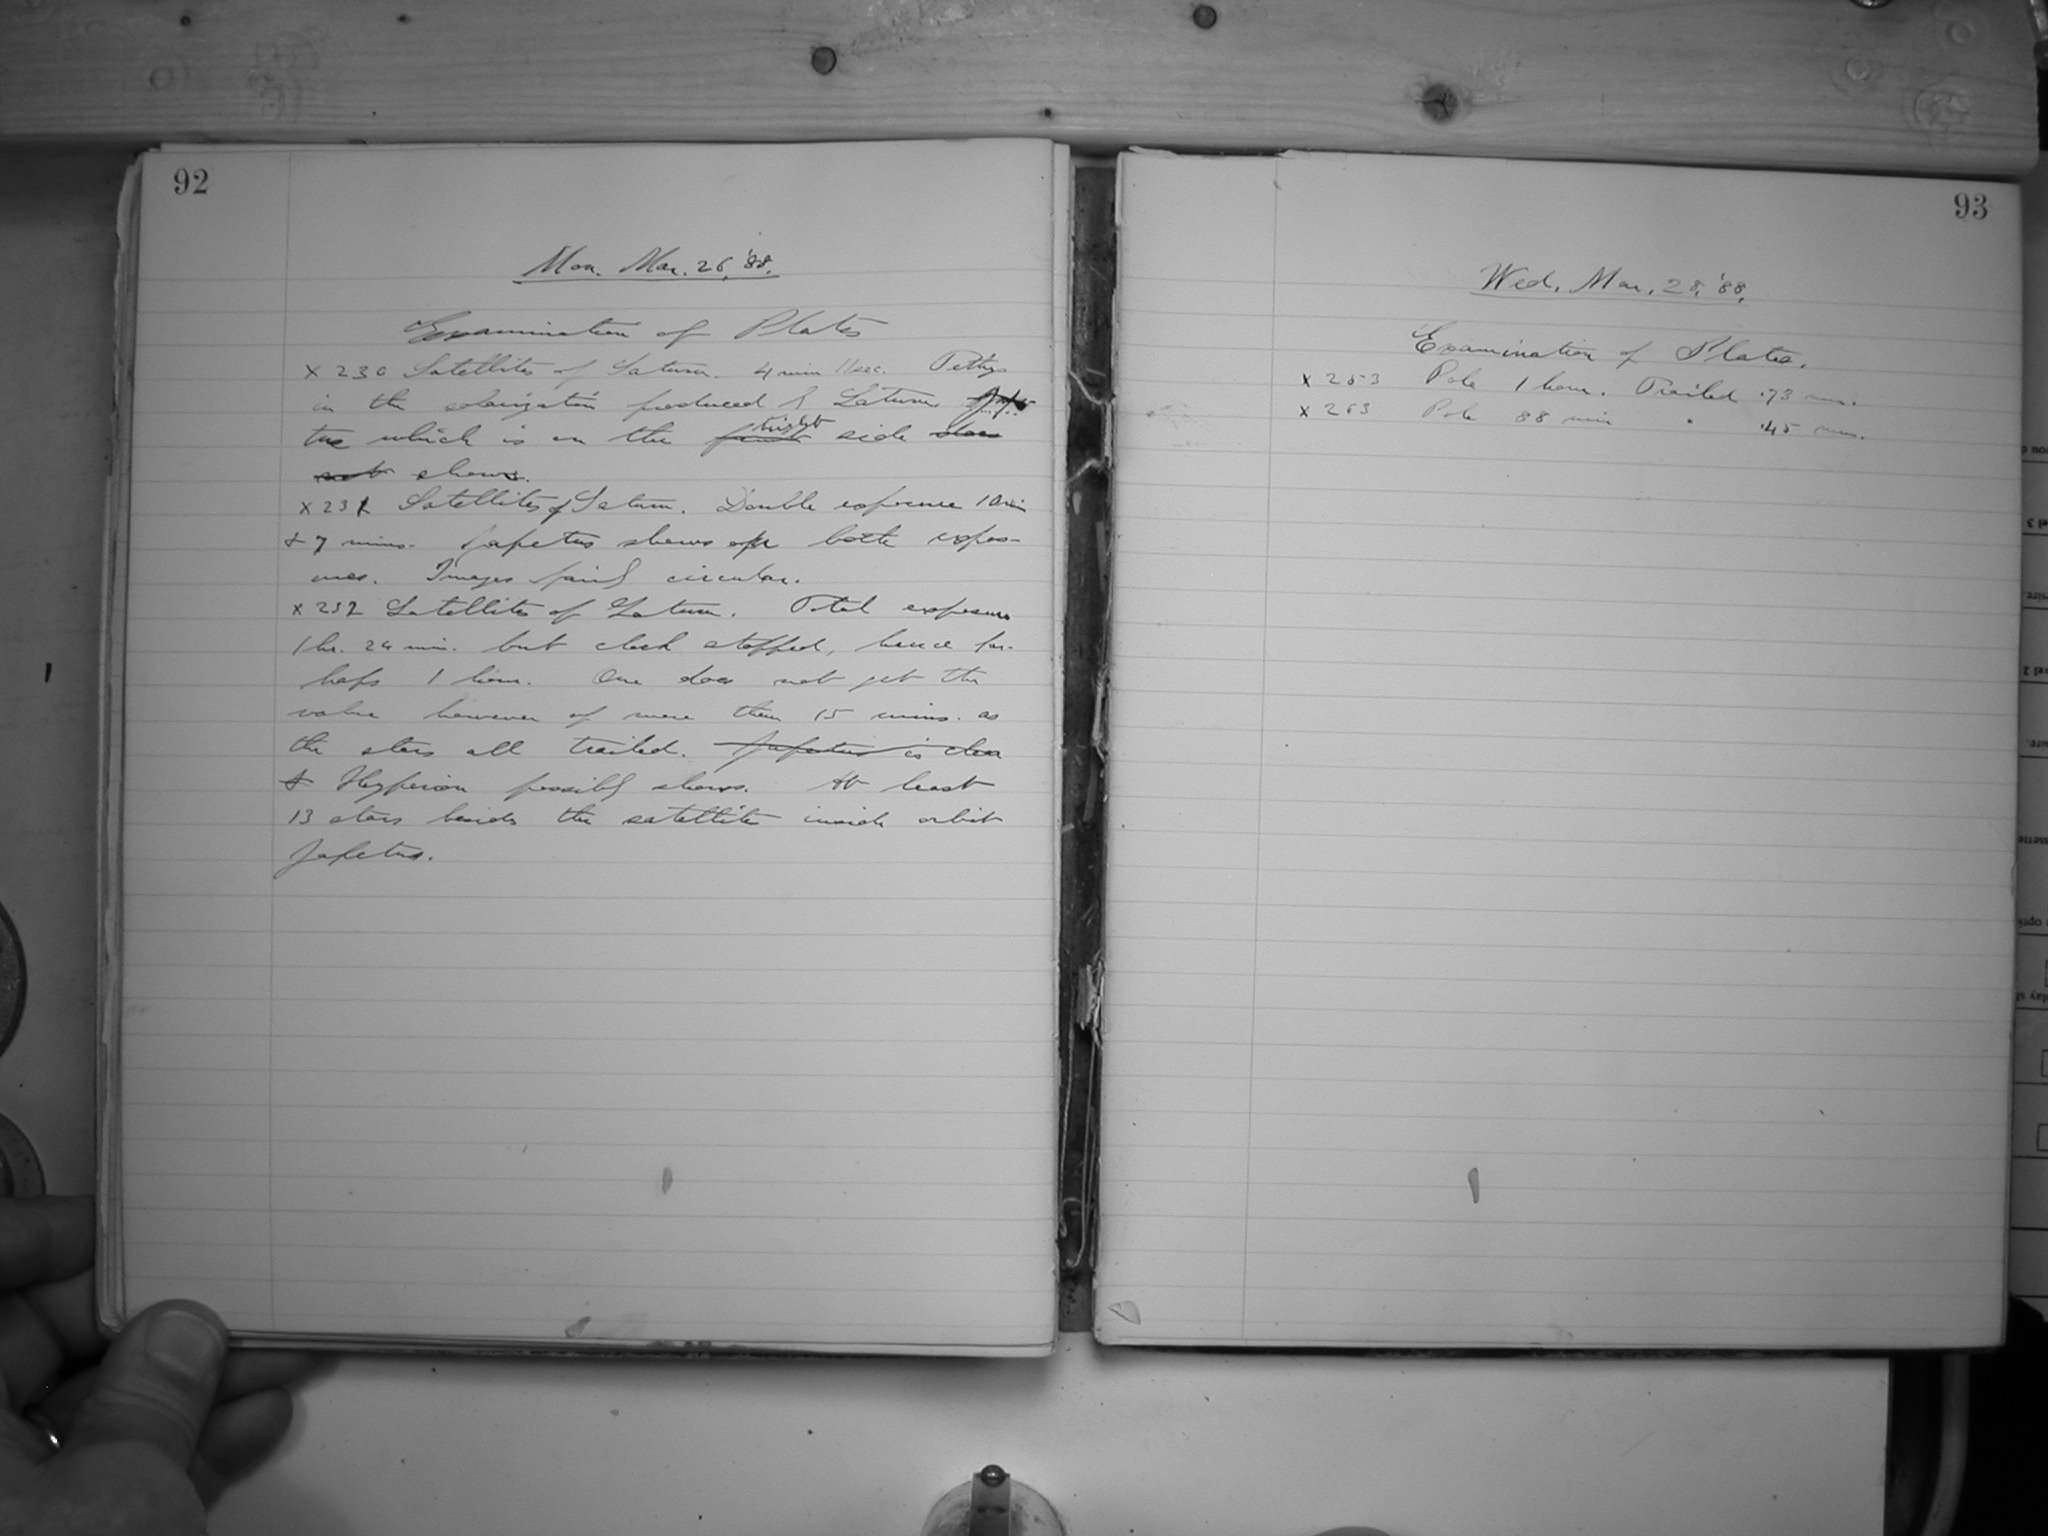 92
Mon. Mar. 26, '88.
Examination of Plates
x 230 Satellites of Saturn. 4 min 11 sec. Tethys
in the solarization produced by Saturn. Jape-
tus which is on the faint bright side does
not shows.
x 231 Satellites of Saturn. Double exposure 10 min
& 7 mins. Japetus shows on both expos-
ures. Images fairly circular.
x 232 Satellites of Saturn. Total exposure
1 hr. 24 min. but clock stopped, hence per-
haps 1 hour. One does not get the
value however of more than 15 mins. as
the stars all trailed. Japetus is clear
& Hyperion possibly shows. At least
13 stars beside the satellites inside orbit
Japetus.
93
Wed. Mar. 28, '88.
Examination of Plates.
x 253 Pole 1 hour. Trailed .73 mm.
x 263 Pole 88 min " .45 mm.